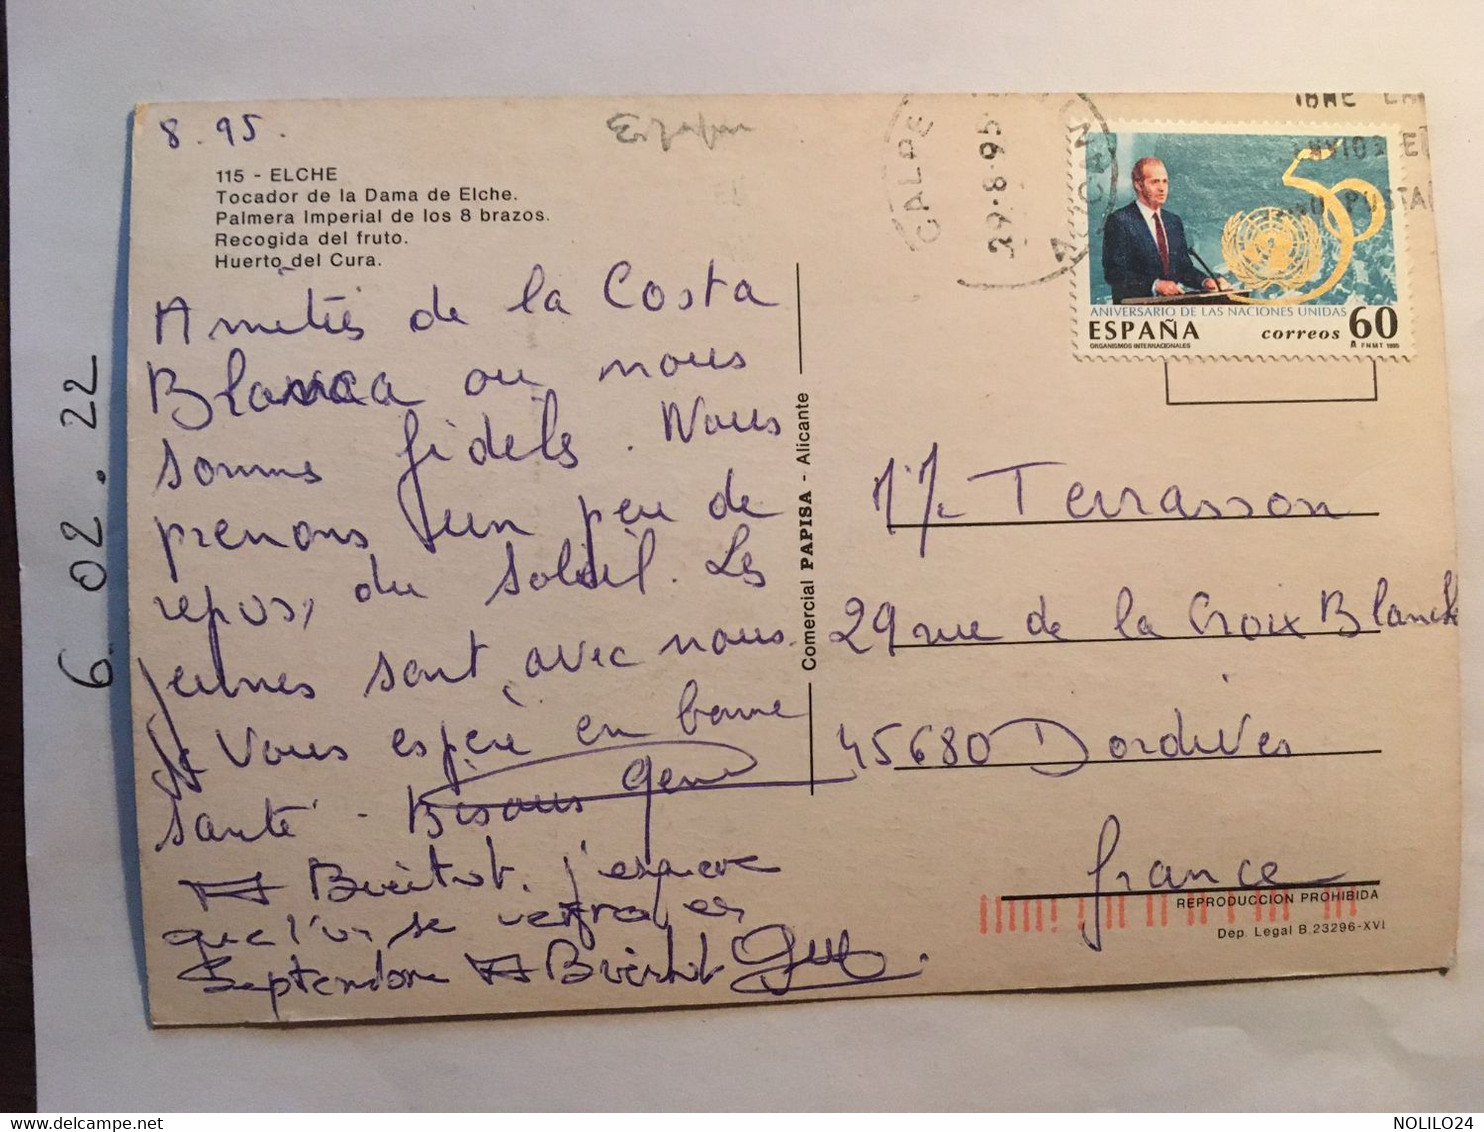 8.95.
115 - ELCHE
Tocador de la Dama de Elche.
Palmera Imperial de los 8 brazos.
Recogida del fruto.
Huerto del Cura.
Amitiés de la Costa
Blanca ou nous
sommes fidels. Nous
prenons un peu de
repos, du soleil. Les
jeunes sont avec nous.
Vous espère en bonne
santé - Bisous
A Bientot. j'espere
que l'on se
Septembre A Bientot
Comercial PAPISA - Alicante
CALPE
29·8·95
ANIVERSARIO DE LAS NACIONES UNIDAS
ESPAÑA correos 60
ORGANISMOS INTERNACIONALES
F N M T 1995
50
Terrasson
29 rue de la Croix Blanche
45680 Dordives
france
REPRODUCCION PROHIBIDA
Dep. Legal B.23296-XVI
6.02.22
NOLILO24